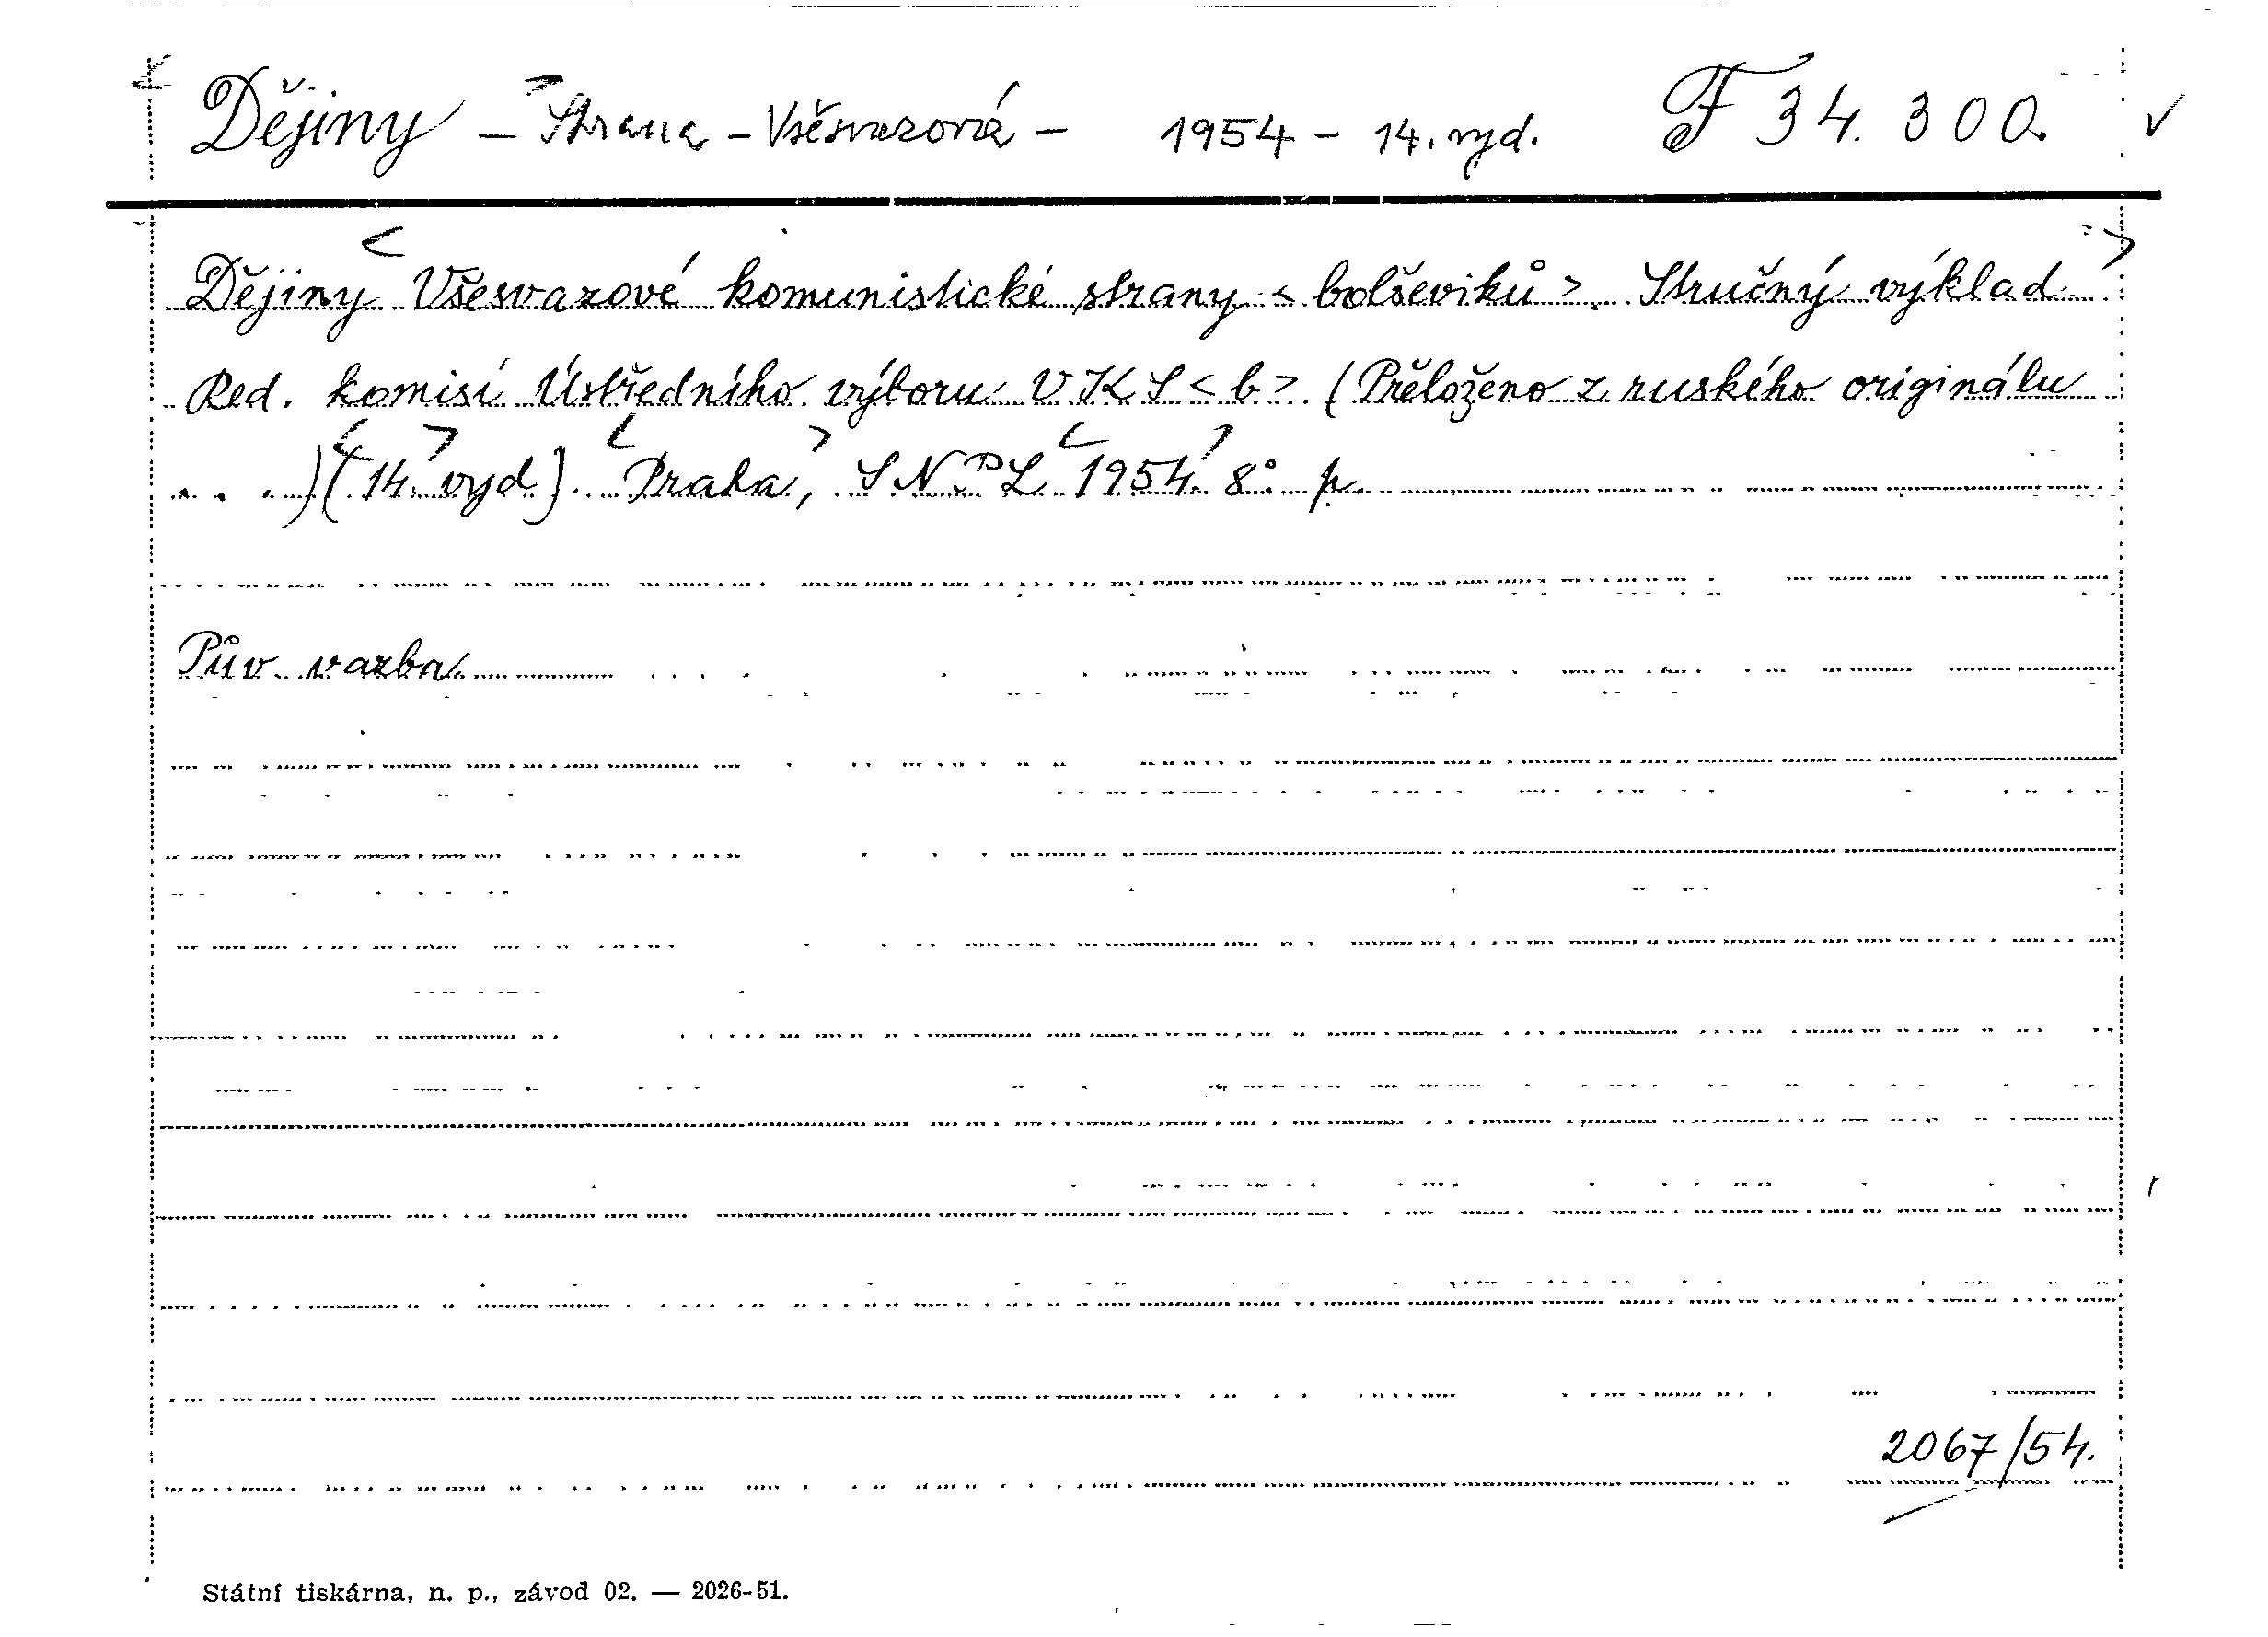 Dějiny – Strana – Všesvazová – 1954 – 14. vyd. F 34.300.
Dějiny Všesvazové komunistické strany < bolševiků >. Stručný výklad
Red. komisí Ústředního výboru VKS < b >. (Přeloženo z ruského originálu
. . .) (14. vyd.). Praha, SNPL 1954. 8° p.
Pův. vazba.
2067/54.
Státní tiskárna, n. p., závod 02. — 2026-51.